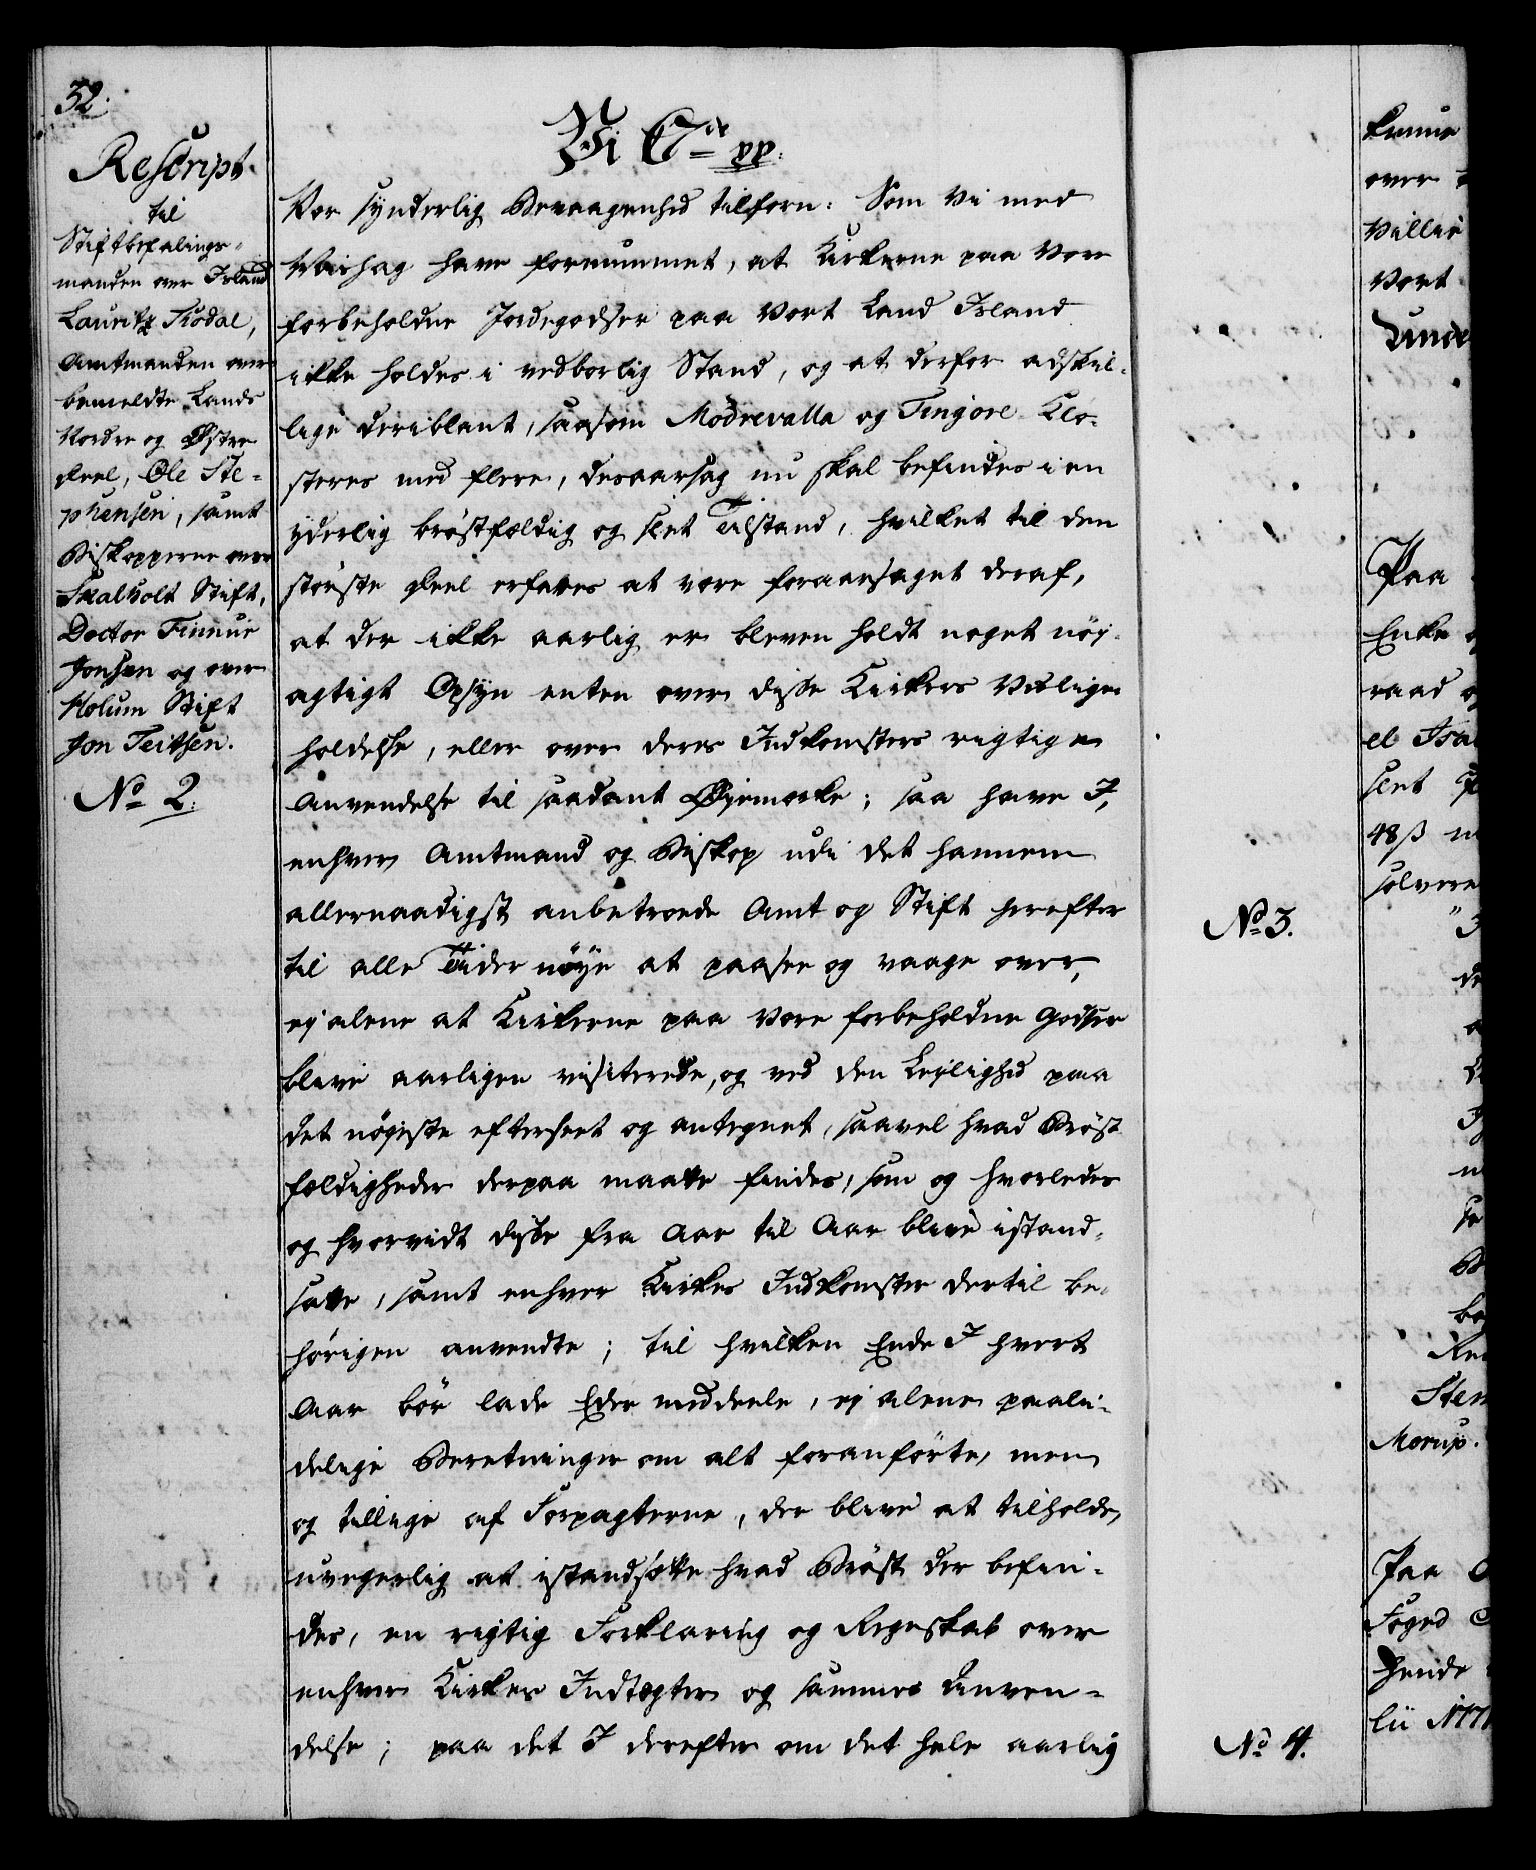 32.
Rescript
til
Stiftbefalings-
manden over Island
Lauritz Thodal,
Amtmanden over
bemeldte Lands
Nordre og Østre
Deel, Ole Ste-
phensen, samt
Biskopperne over
Skalholt Stift,
Doctor Finnur
Jonsen og over
Holum Stift
Jon Teitsen.
No 2.
Vi C7de pp:
Vor synderlig Bevaagenhed tilforn: Som Vi med
Mishag have fornummet, at Kirkerne paa Vore
forbeholdne Jordegodser paa Vort Land Island
ikke holdes i vedborlig Stand, og at derfor adskil-
lige deriblant, saasom Mödrevalla og Tingöre Klo-
steres med flere, desaarsag nu skal befindes i en
yderlig bröstfældig og slet Tilstand, hvilket til den
störste Deel erfares at være foraarsaget deraf,
at der ikke aarlig er bleven holdt noget nöj-
agtigt Opsyn enten over disse Kirkers Vedlige-
holdelse, eller over deres Indkomsters rigtige
Anvendelse til saadant Øjemærke; saa have I,
enhver Amtmand og Biskop udi det hannem
allernaadigst anbetroede Amt og Stift herefter
til alle Tiider nöye at paasee og vaage over,
ej alene at Kirkerne paa Vore forbeholdne Godser
blive aarligen visiterede, og ved den Lejlighed paa
det nöjeste efterseet og antegnet, saavel hvad Bröst
fældigheder derpaa maatte findes, som og hvorledes
og hvorvidt disse fra Aar til Aar blive istand-
satte, samt enhver Kirkes Indkomster dertil be-
hörigen anvendte; til hvilken Ende I hvert
Aar bör lade Eder meddeele, ej alene paali-
delige Beretninger om alt foranförte, men
og tillige af Forpagterne, der blive at tilholde,
uvegerlig at istandsætte hvad Bröst der befin-
des, en rigtig Forklaring og Regnskab over
enhver Kirkes Indtægter og sammes Anven-
delse; paa det I derefter om det hele aarlig
No 3.
No 4.
over
Villie
Vort
Unde
Paa
Enke
raad
48 ß
Morup.
Paa
Foged